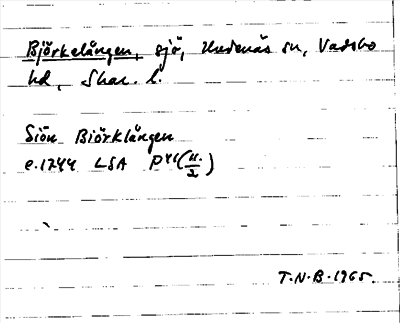 Björkelången, sjö, Undenäs sn, Vadsbo
hd, Skar. l.
Siön Biörklången
e.1744 LSA P41(11:2)
T.N.B. 1965.